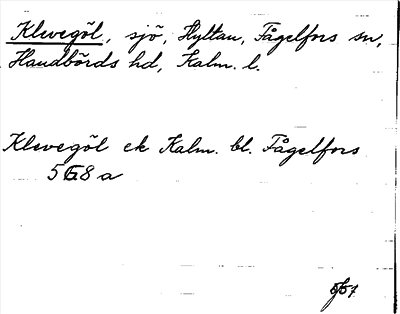 Klevegöl, sjö, Hyltan, Fågelfors sn,
Handbörds hd, Kalm. l.
Klevegöl ek Kalm. bl. Fågelfors
5G8 a